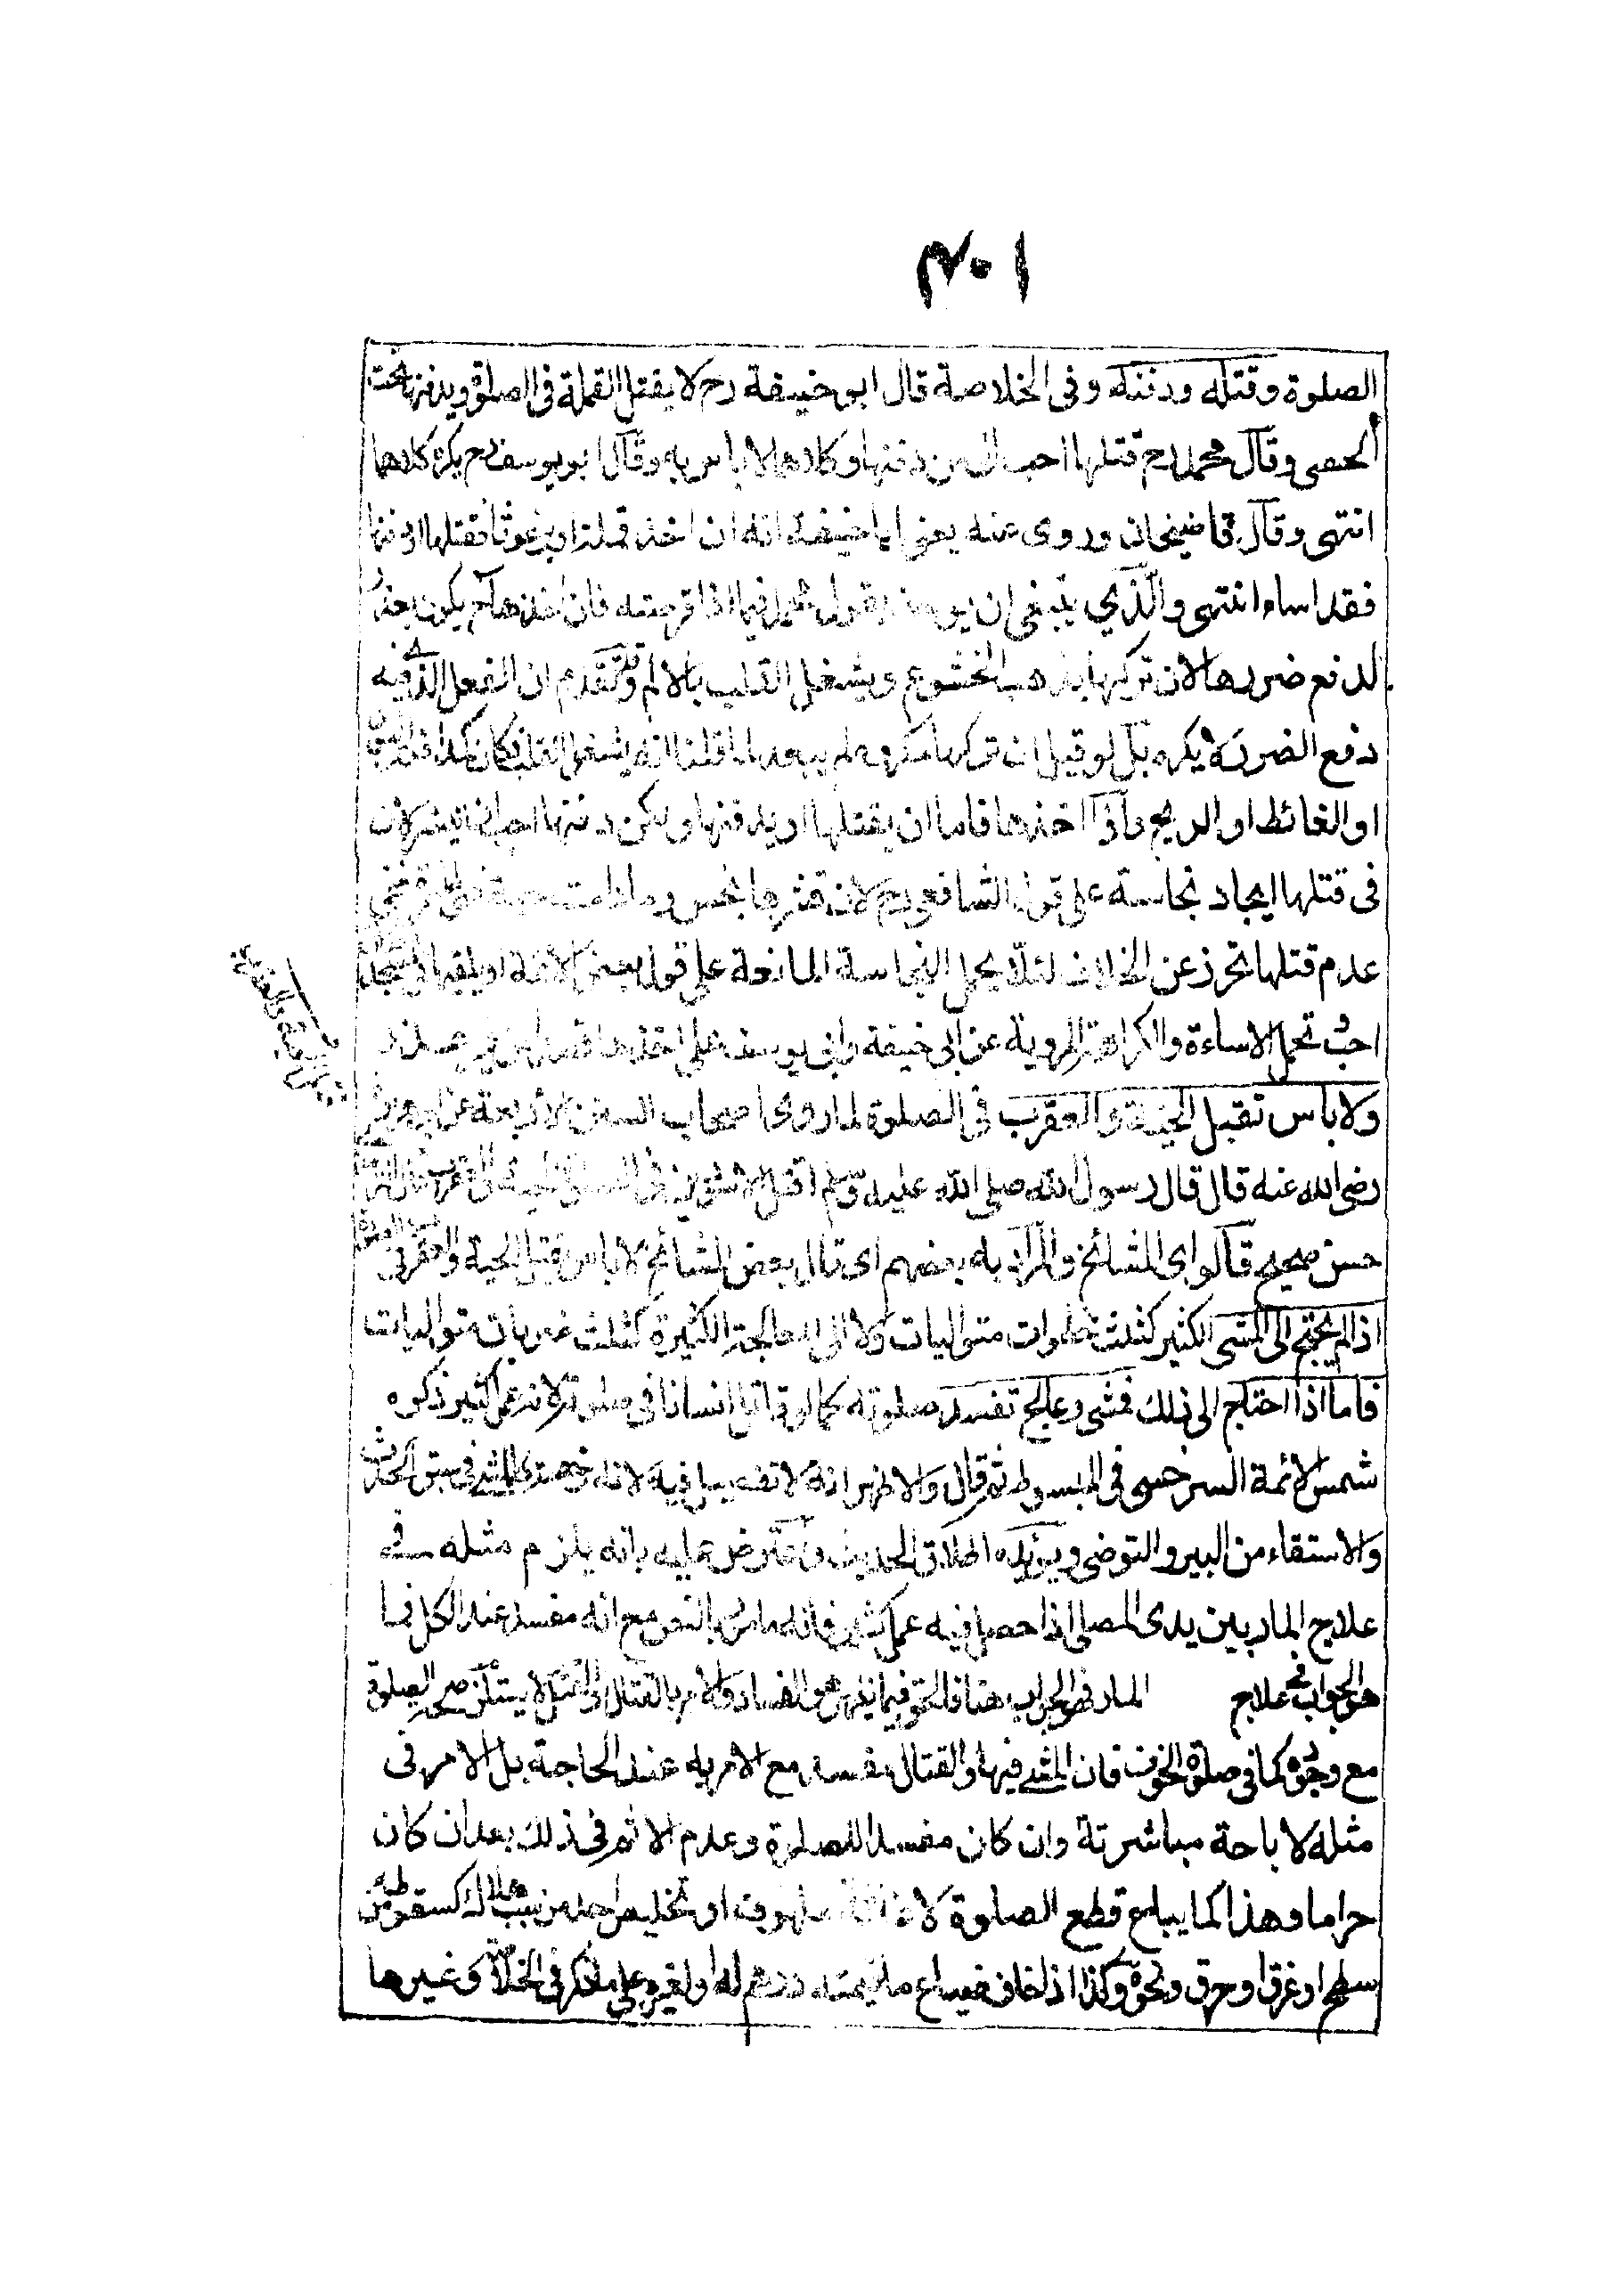 ٣٠١
الصلوة وقتله ودفنه وفى الخلاصة قال ابو حنيفة رح لا يقتل القملة فى الصلوة ويدفنها تحت
الحصى وقال محمد رح قتلها احب الى من دفنها وكلاهما لا باس به وقال ابو يوسف رح يكره كلاهما
انتهى وقال قاضيخان وروى عنه يعنى ابا حنيفة انه ان اخذ قملة او برغوثا فقتلها او دفنها
فقد اساء انتهى والذي ينبغى ان يوخذ بقول محمد فيما اذا قرصته فان اخذها لم يكون بعذر
لدفع ضررها لان تركها يذهب الخشوع ويشغل القلب بالالم وقد تقدم ان الفعل الذى فيه
دفع الضرر لا يكره بل لو قيل ان تركها مكروه لم يبعد لما قلنا انه يشغل القلب فكان كمدافعة
او الغائط او الريح واذا اخذها فاما ان يقتلها او يدفنها ولكن دفنها احب
فى قتلها ايجاد نجاسة على قول الشافعى رح لان قشرها نجس وما دامت حية
عدم قتلها تحرز عن الخلاف لئلا يحمل النجاسة المانعة على قول بعض الائمة او يلقيها فى المسجد
احب تحمل الاساءة والكراهة المروية عن ابى حنيفة وابى يوسف على اخذها قصدا من غير عذر
ولا باس بقتل الحية والعقرب فى الصلوة لما روى اصحاب السنن الاربعة عن ابى هريرة
رضى الله عنه قال قال رسول الله صلى الله عليه وسلم اقتلوا الاسودين فى الصلوة الحية والعقرب
حسن صحيح قالوا اى المشائخ والمراد به بعضهم اى قال بعض المشائخ لا باس بقتل الحية والعقرب فى
اذا لم يحتج الى المشى الكثير كثلث خطوات متواليات ولا الى المعالجة الكثيرة كثلث ضربات متواليات
فاما اذا احتاج الى ذلك فمشى وعالج تفسد صلوته كما لو قاتل انسانا فى صلوته لانه عمل كثير ذكره
شمس الائمة السرخسى فى المبسوط ثم قال والاظهر انه لا تفصيل فيه لانه رخصة كالمشى فى سبق الحدث
والاستقاء من البير والتوضى ويؤيده اطلاق الحديث واعترض عليه بانه يلزم مثله فى
علاج المار بين يدى المصلى اذا حصل فيه عمل كثير فانه مامور بالنص مع انه مفسد عند الكل فما
هو الجواب عن علاج المار فهو الجواب هنا فالحق فيما يظهر هو الفساد والامر بالقتل لا يستلزم صحة الصلوة
مع وجوده كما فى صلوة الخوف فان المشى فيها والقتال مفسد مع الامر به عند الحاجة بل الامر فى
مثله لاباحة مباشرته وان كان مفسدا للصلوة وعدم الاثم فى ذلك بعد ان كان
حراما وهذا كما يباح قطع الصلوة لاغاثة ملهوف او تخليص احد من سبب هلاك كسقوط من
سطح او غرق او حرق ونحوه وكذا اذا خاف ضياع ما قيمته درهم له او لغيره على ما ذكر فى الخلاصة وغيرها